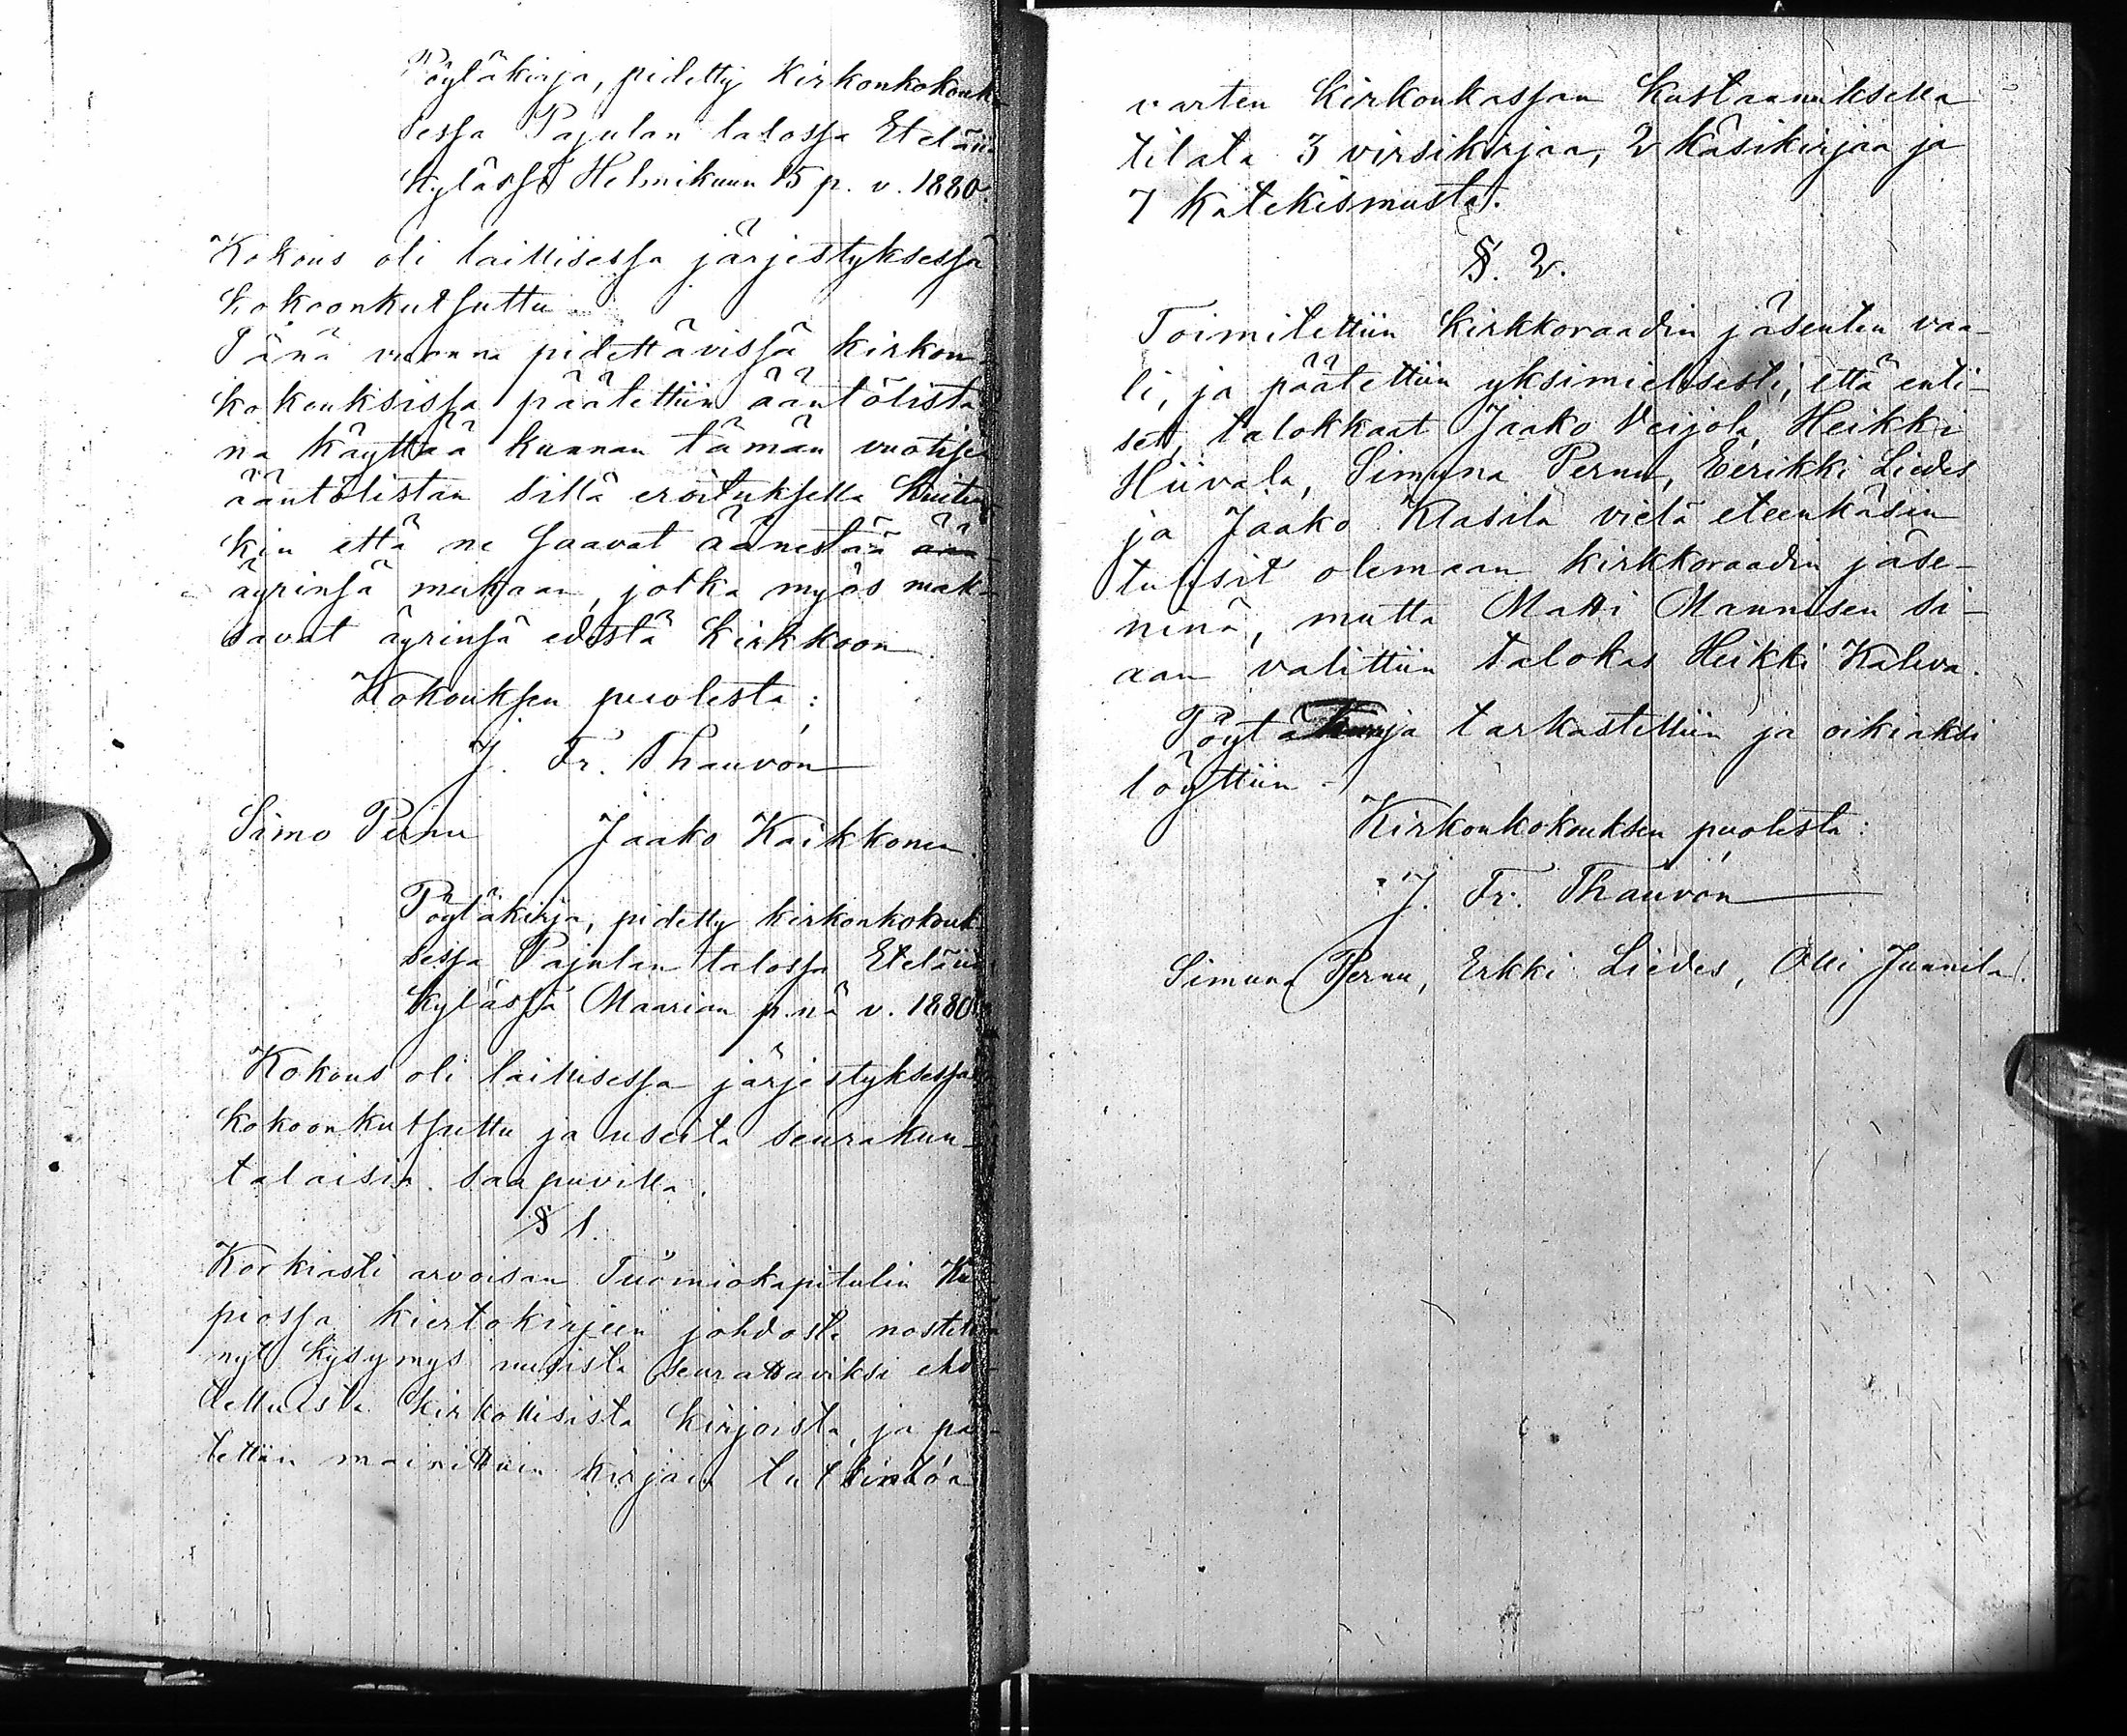 Pöytäkirja, pidetty Kirkonkokouk-
sessa Pajulan talossa Etelän-
kylässä Helmikuun 15 p. v. 1880.
Kokous oli laillisessa järjestyksessä
kokoonkutsuttu.
Tänä vuonna pidettävissä kirkon
kokouksissa päätettiin ääntölista-
na käyttää kunnan tämän vuotista
ääntölistan sillä eroituksella kuiten-
kin että ne saavat äänestää ää
äyrinsä mukaan, jotka myös mak-
savat äyrinsä edestä kirkkoon.
Kokouksen puolesta:
J. Fr. Thauvón
Simo Pernu Jaako Kaikkonen.
Pöytäkirja, pidetty kirkonkokouk-
sessa Pajulan talossa Etelän-
kylässä Maarian p.nä v. 1880
Kokous oli laillisessa järjestyksessä
kokoonkutsuttu ja useita seurakun-
talaisia saapuvilla.
§ 1.
Korkiasti arvoisan Tuomiokapitulin Ku-
piossa kiertokirjeen johdosta nostettiin
nyt kysymys uusista seurattaviksi eh-
detelluista kirkollisista kirjoista, ja pää-
tettiin mainittuin kirjain tutkintoa
varten Kirkonkassan kustannuksella
tilata 3 virsikirjaa, 2 käsikirjaa ja
7 katekismusta.
§. 2.
Toimitettiin Kirkkoraadin jäsenten vaa-
li, ja päätettiin yksimielisesti, että enti-
set, talokkaat Jaako Veijola, Heikki
Hiivala, Simuna Pernu, Eerikki Liedes
ja Jaako Klasila vielä eteenkäsin
tulisit olemaan kirkkoraadin jäse-
ninä, mutta Matti Mannisen si-
aan valittiin talokas Heikki Kaleva.
Pöytäkirja tarkastettiin ja oikiaksi
löyttiin.
Kirkonkokouksen puolesta:
J. Fr. Thauvón
Simuna Pernu, Erkki Liedes, Olli Junnila.